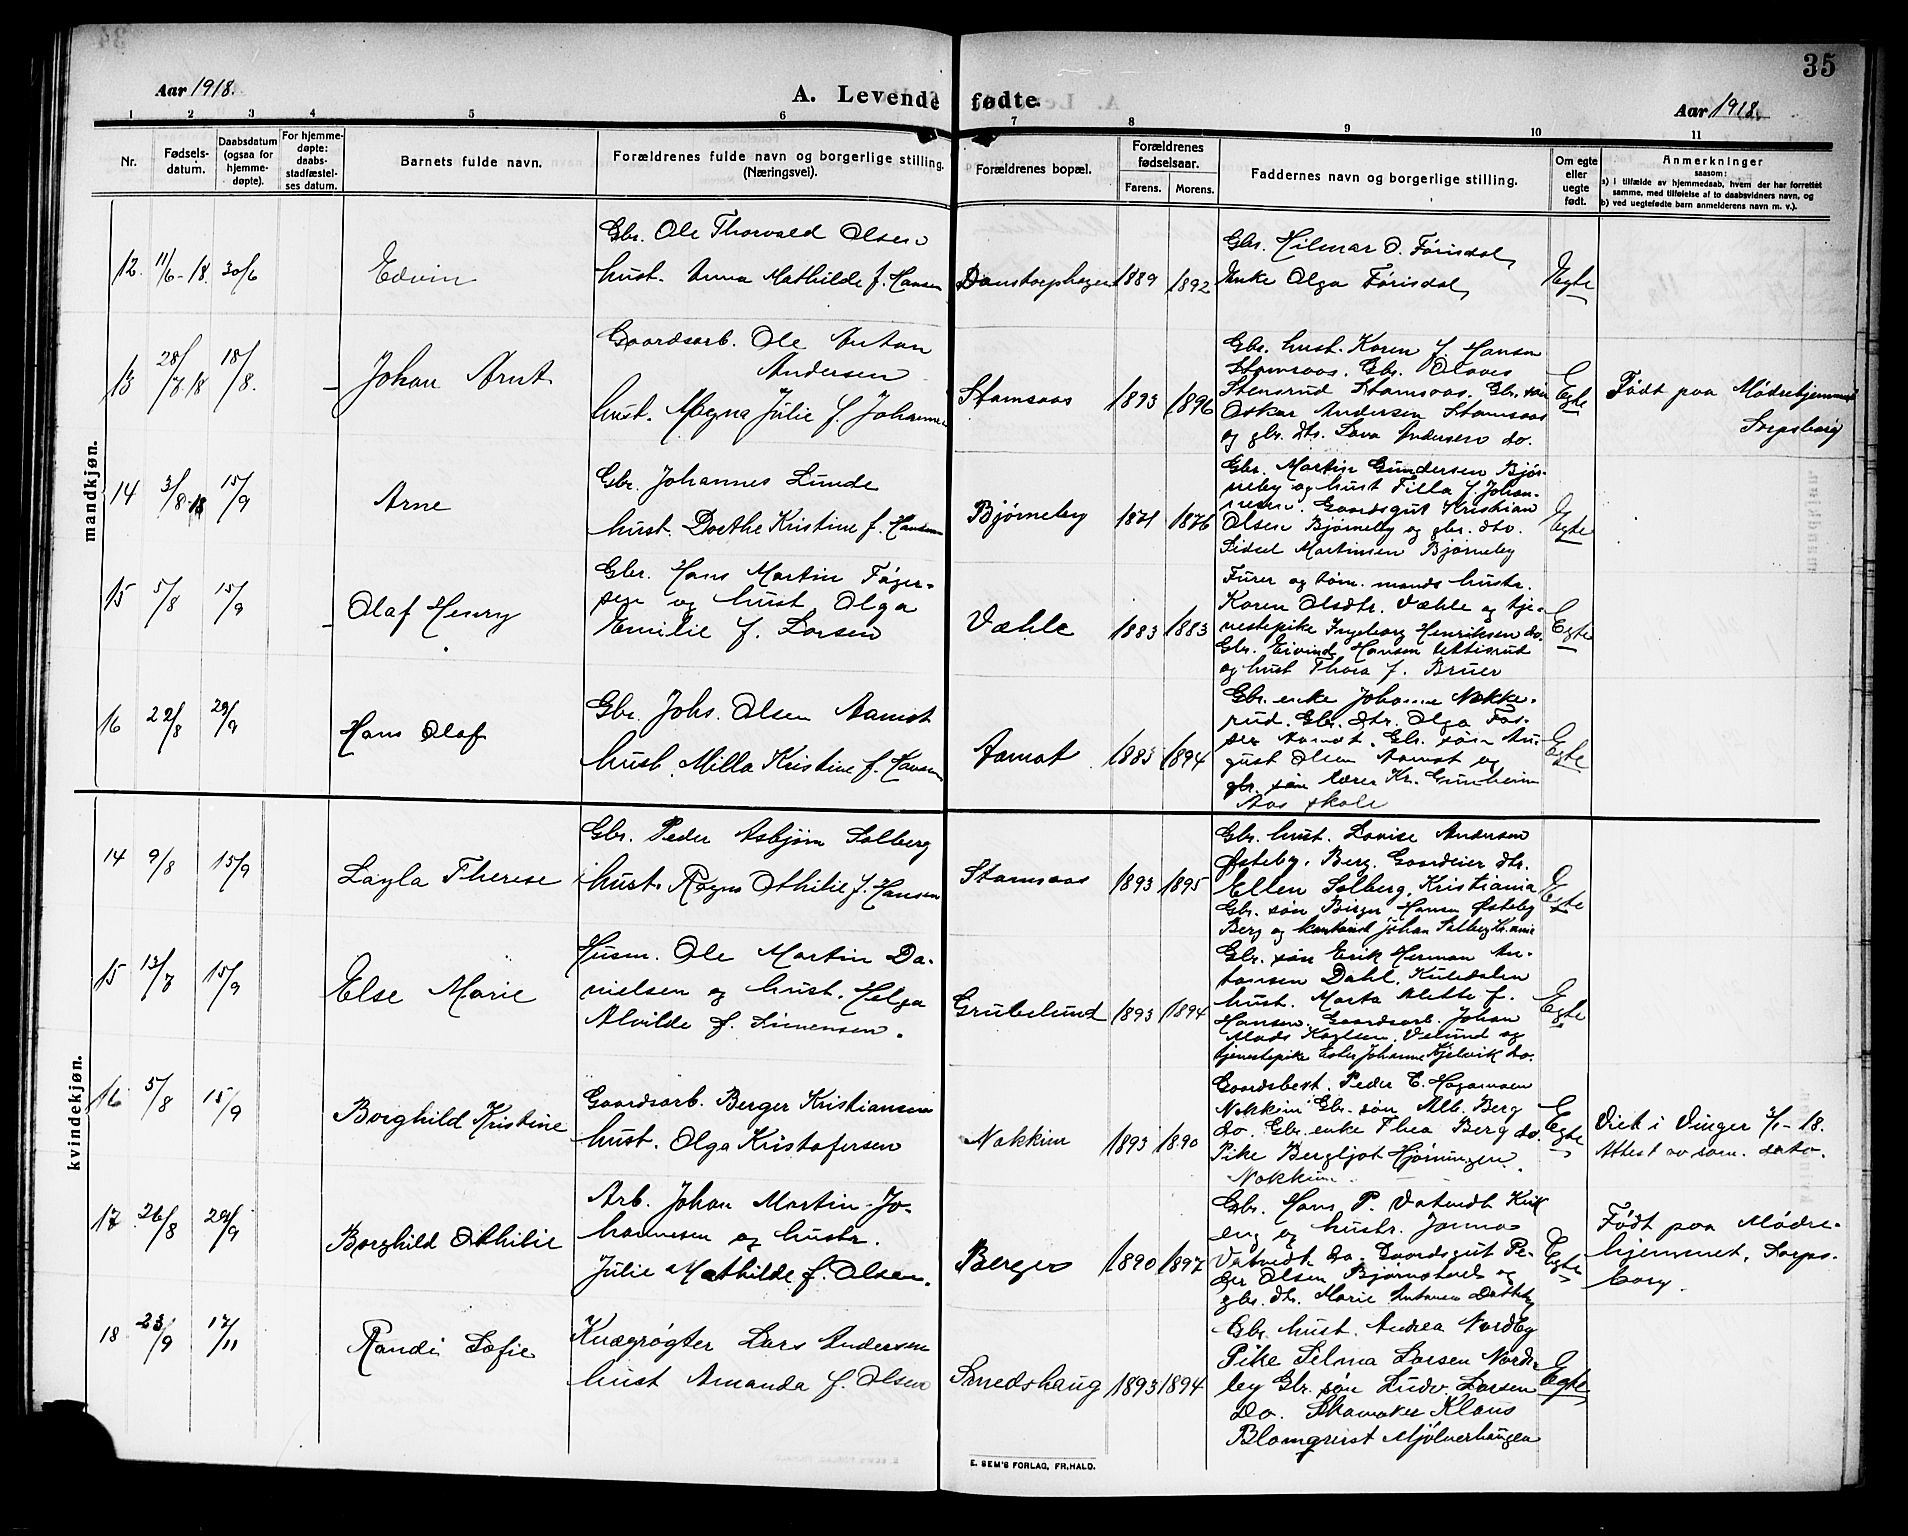 35
Aar 1918.
A. Levende fødte.
Aar 1918.
1 2 3 4 5 6 7 8 9 10 11
Nr.
Fødsels-
datum.
Daabsdatum
(ogsaa for
hjemme-
døpte).
For hjemme-
døpte:
daabs-
stadfæstel-
ses datum.
Barnets fulde navn.
Forældrenes fulde navn og borgerlige stilling.
(Næringsvei).
Forældrenes bopæl.
Forældrenes
fødselsaar.
Farens. Morens.
Faddernes navn og borgerlige stilling.
Om egte
eller
uegte
født.
Anmerkninger
saasom:
a) i tilfælde av hjemmedaab, hvem der har forrettet
samme, med tilføielse af to daabsvidners navn, og
b) ved uegtefødte barn anmelderens navn m. v.).
mandkjøn.
12. 11/6-18. 30/6
Edvin
Gbr. Ole Thorvald Olsen
hust. Anna Mathilde f. Hansen
Danstorphagen 1889 1892
Gbr. Hilmar O. Førisdal,
Enke Olga Førisdal,
Egte
13 28/7 18 18/8.
Johan Arnt
Gaardsarb. Ole Anton
Andersen
hust. Magna Julie f. Johannesen
Stamsaas 1893 1896
Gbr. hust. Karen f. Hansen
Stamsaas. Gbr. Olaves
Stensrud Stamsaas. Gbr. søn
Oskar Andersen Stamsaas
og gbr. dtr. Lava Andersen do.
Egte
Født paa Mødrehjemmet
Sarpsborg
14 3/8-18 15/9
Arne
Gbr. Johannes Lunde
hust. Dorthe Kristine f. Hansen
Bjørneby 1871 1876
Gbr. Martin Gundersen Bjør-
neby og hust Tilla f. Johan-
nesen. Gaardsgut Kristian
Olsen Bjørneby og gbr. dtr.
Sidsel Martinsen Bjørneby
Egte
15 5/8 15/9
Olaf Henry
Gbr. Hans Martin
sen og hust Olga
Emilie f. Larsen
Væhle 1883 1883
Furer og tøm. mands hustr.
Karen Olsdtr. Væhle og tje-
nestepike Ingeborg Henriksen do.
Gbr. Eivind Hansen
og hust Thora f. Bruer
Egte
16 22/8 29/9
Hans Olaf
Gbr. Johs. Olsen Aamot
hust. Milla Kristine f. Hansen
Aamot 1883 1894
Gbr. enke Johanne Nokke-
rud. Gbr. dtr. Olga
Aamot. Gbr. søn Au-
gust Olsen Aamot og
gbr. søn lærer Kr. Grinheim
Aas skole
Egte
kvindekjøn.
14 9/8 15/9
Layla Therese
Gbr. Peder Asbjørn Solberg
hust. Ragna Othilie f. Hansen
Stamsaas 1893 1895
Gbr. hust. Lovise Andersen
Østeby, Berg. Gaardeier dtr.
Ellen Solberg, Kristiania
Gbr. søn Birger Hansen Østeby
Berg og kontorist Johan Solberg Kr.ania
Egte
15 13/7 15/9
Else Marie
Husm. Ole Martin Da-
nielsen og hust. Helga
Alvilde f. Simensen.
Grubelund 1893 1894
Gbr. søn Erik Herman An-
tonsen Dahl, Kuledalen
hust. Marta Alette f.
Hansen. Gaardsarb. Johan
Mads Karlsen, Velund og
tjenestepike Ester Johanne Kjelvik do.
Egte
16 5/8 15/9
Borghild Kristine
Gaardsarb. Berger Kristiansen
hust. Olga Kristofersen
Nokkim 1893 1890
Gaardsbest. Peder E.
Nokkim Gbr. søn Alb. Berg
do. Gbr. enke Thea Berg do.
Pike Bergljot Hjørningen.
Nokkim.
Egte
Viet i Vinger 3/1-18.
Attest av sam. dato.
17 26/8 29/9
Borghild Othilie
Arb. Johan Martin Jo-
hannesen og hustr.
Julie Mathilde f. Olsen.
Berger 1890 1897
Gbr. Hans P. Vatvedt Kirk
eng og hustr. Janna
Vatvedt do. Gaardsgut Pe-
der Olsen Bjørnstad og
gbr. dtr. Marie Antonsen Datteby
Egte
Født paa Mødre-
hjemmet, Sarps-
borg.
18 23/9 17/11
Randi Sofie
Kuægrøgter Lars Andersen
hust Amanda f. Olsen
Smedshaug 1893 1894
Gbr. hust. Andrea Nordby
Pike Selma Larsen Nord-
by Gbr. søn Ludv. Larsen
Do. Skomaker Klaus
Blomqvist Mjølnerhaugen
Egte
E. SEM'S FORLAG, FR.HALD.